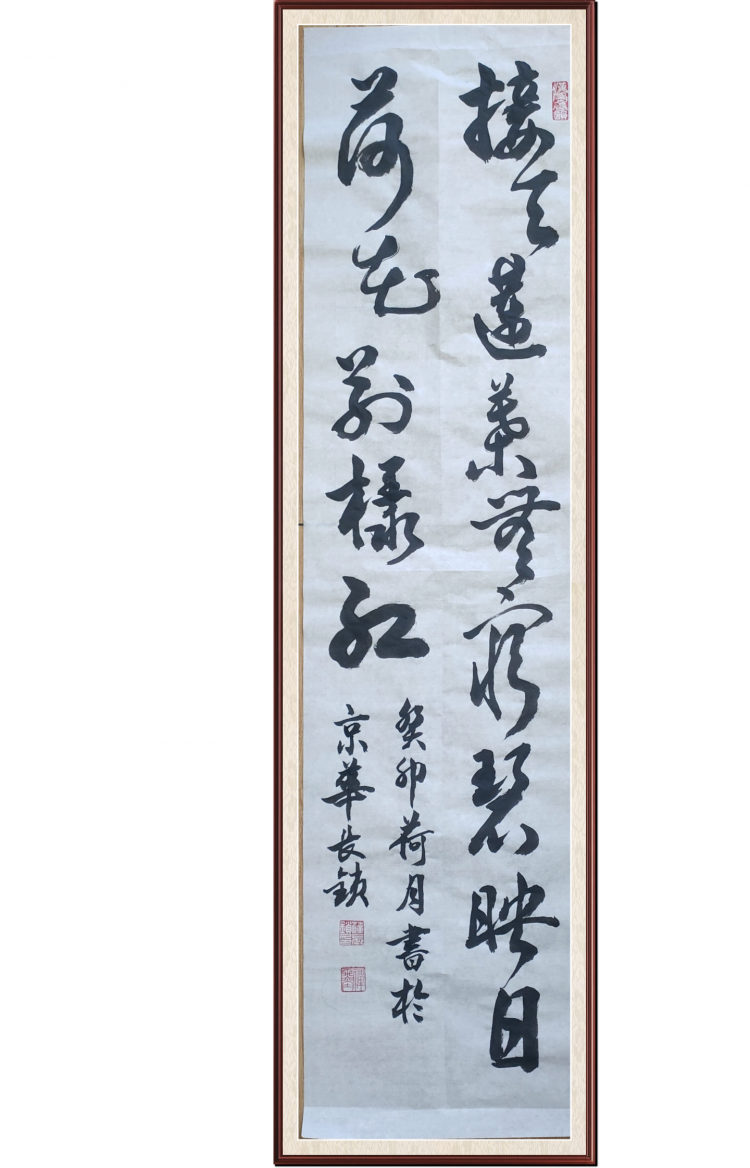 接天蓮葉無窮碧映日
荷花别樣紅
癸卯荷月書於
京華長鎖